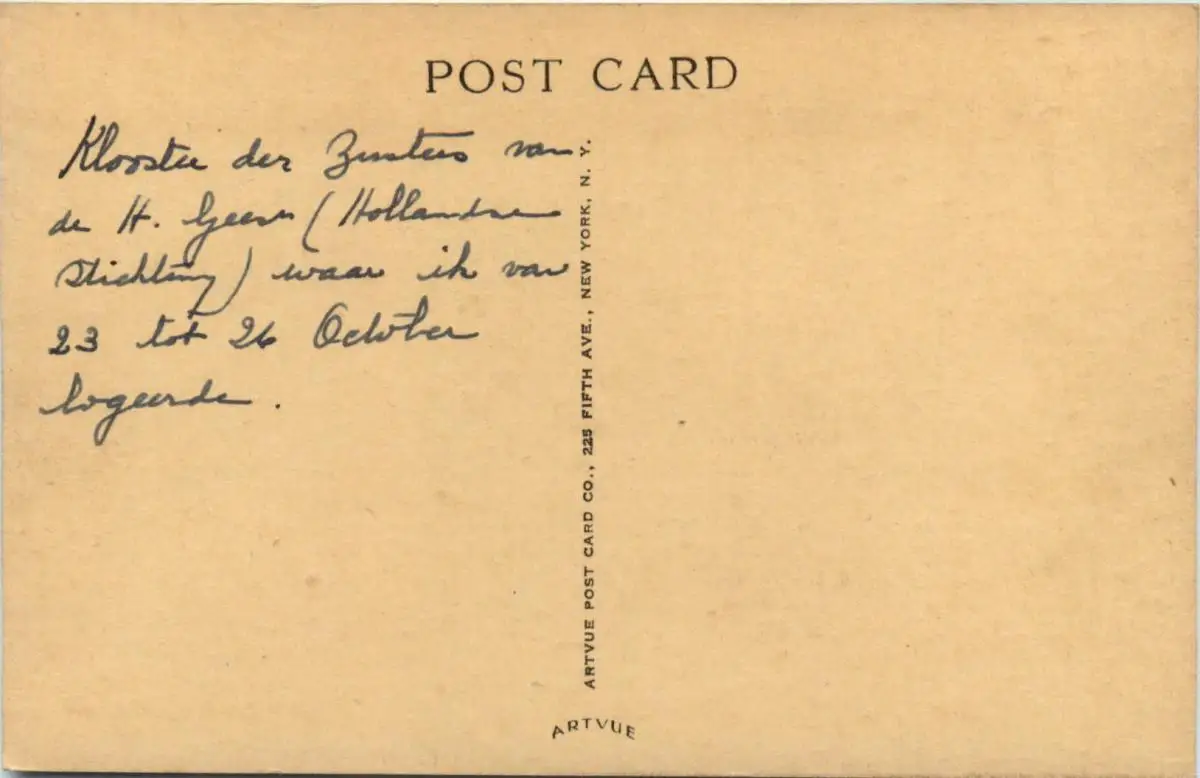 POST CARD
Klooster der Zusters van
de H. Geest (Hollandse
Stichting) waar ik van
23 tot 26 October
logeerde.
ARTVUE POST CARD CO., 225 FIFTH AVE., NEW YORK, N. Y.
ARTVUE